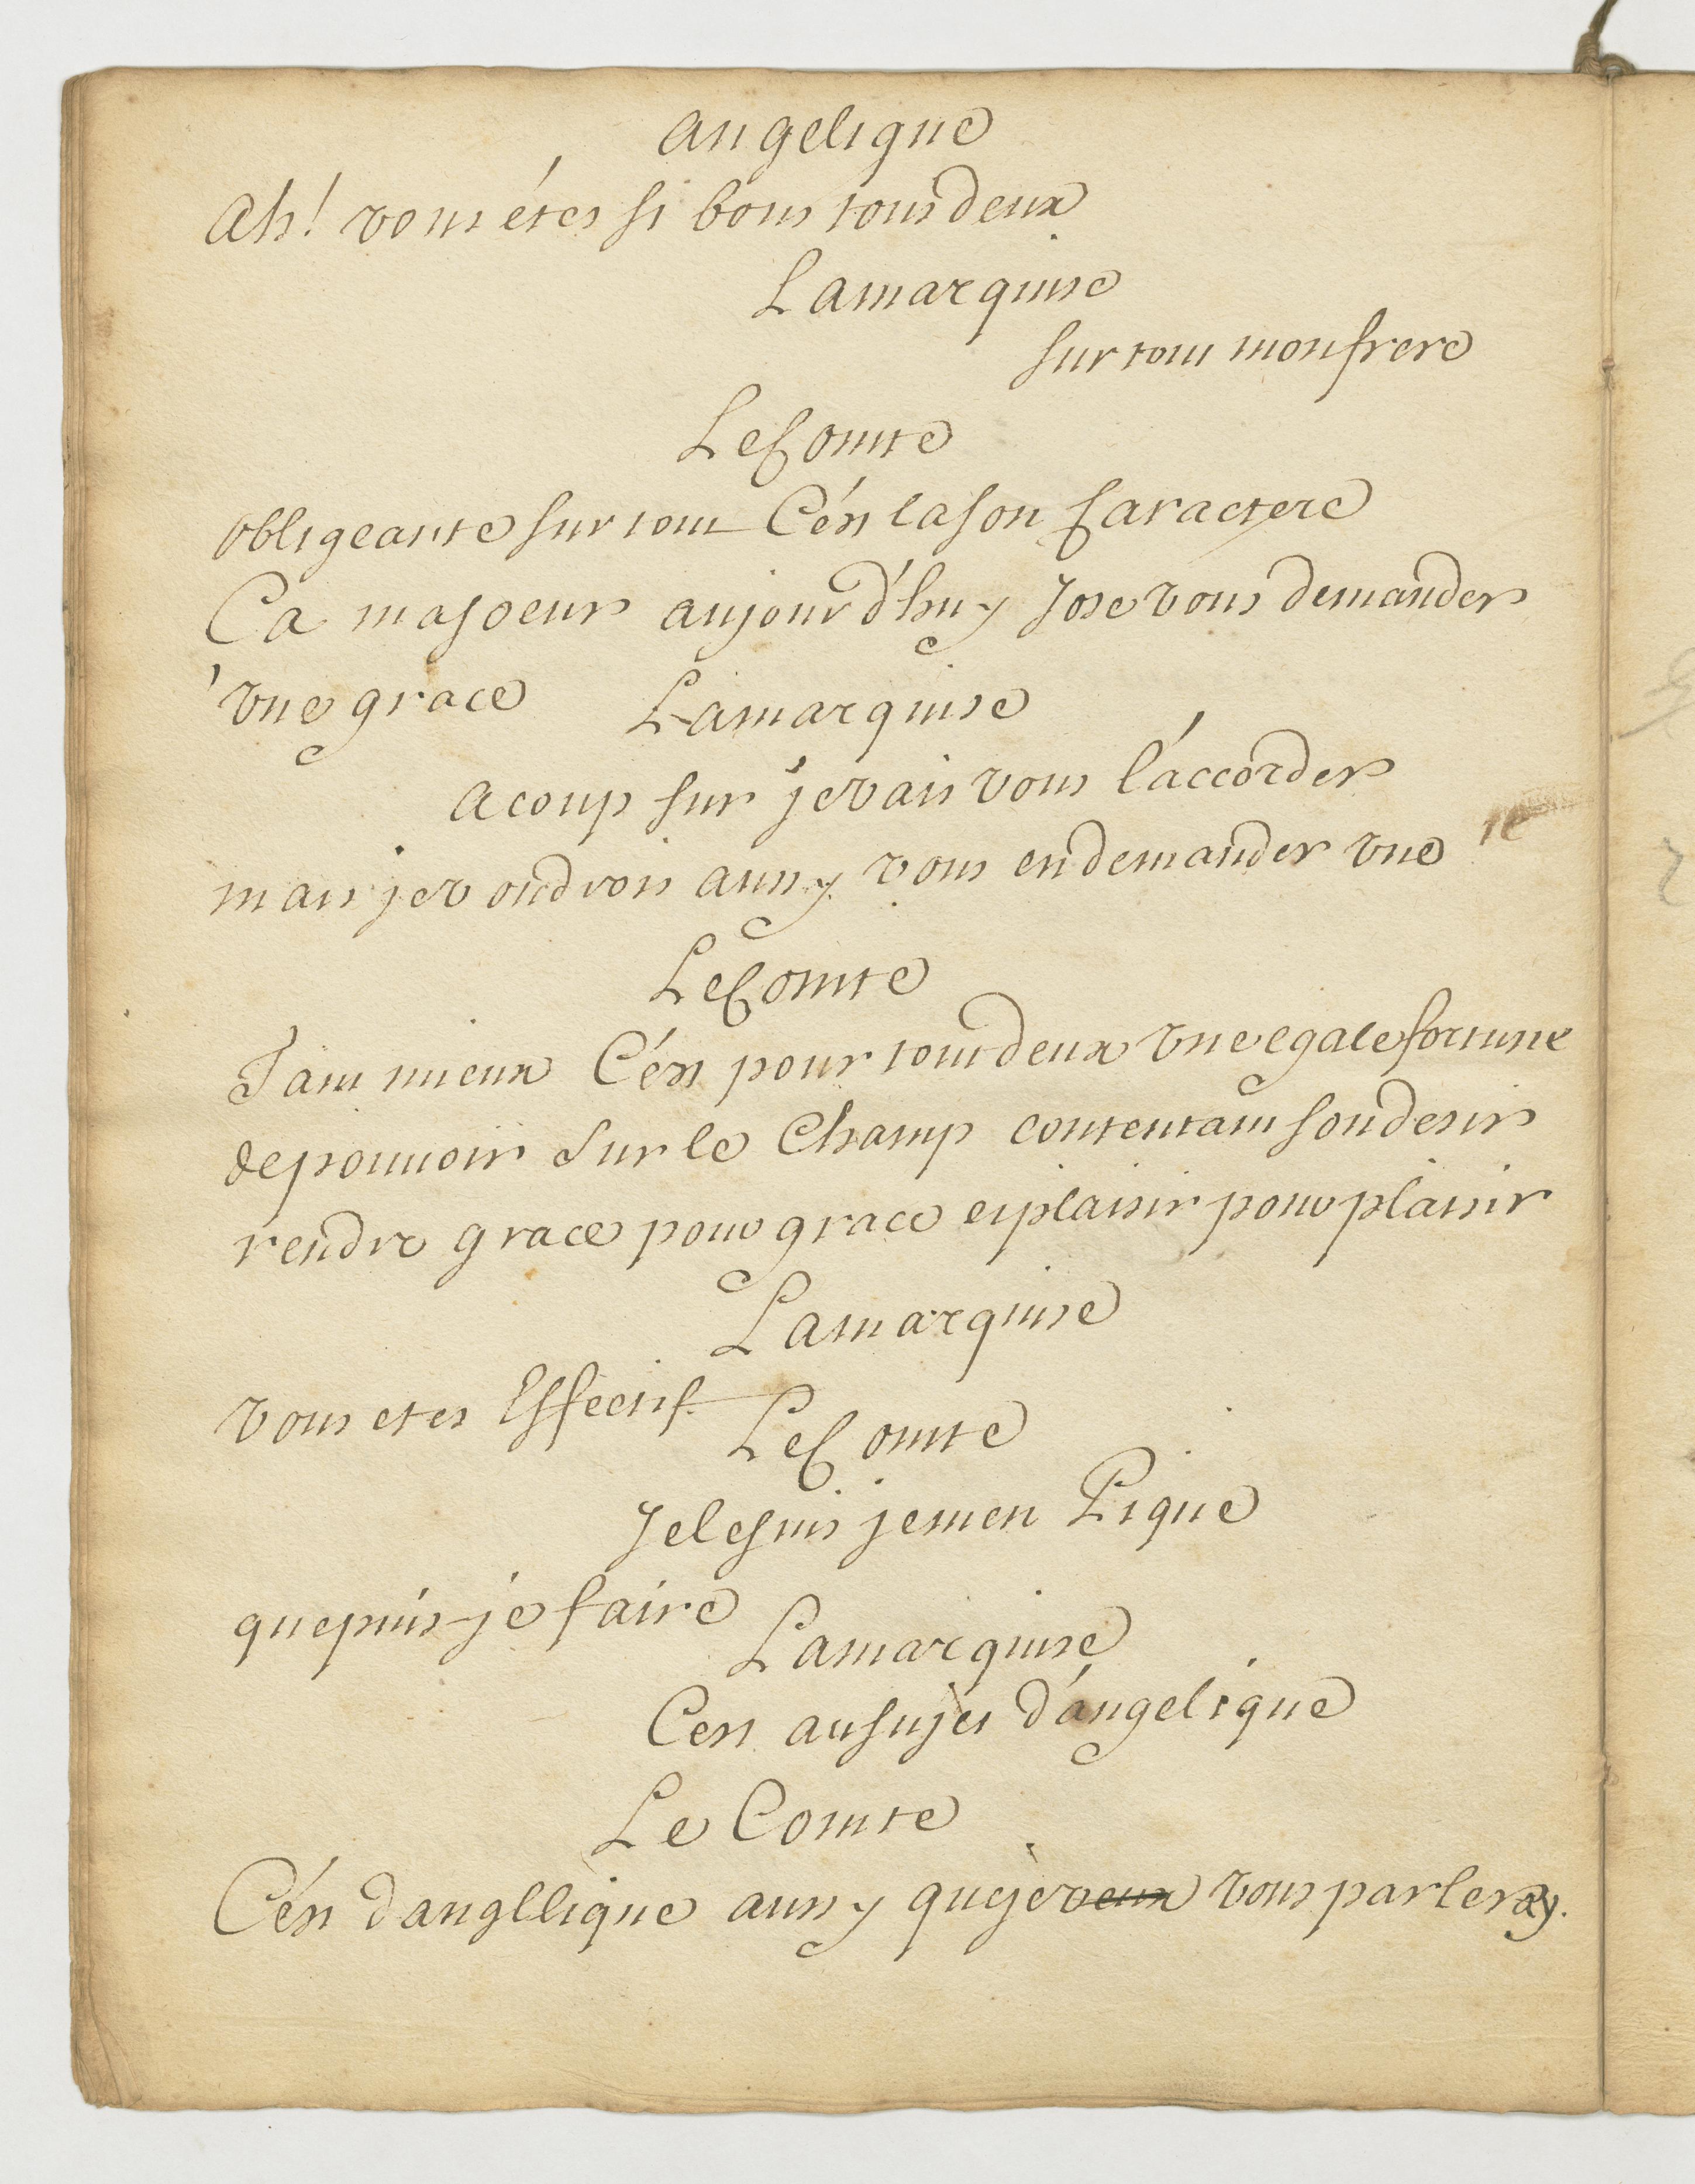 angelique
Ah! vous étes si bons tous deux
La marquise
sur tout mon frere
Le Comte
obligeante sur tout C'ést la son Caractere
Ca ma soeur aujourd'huy Jose vous demander
vne grace La marquise
a coup sur je vais vous l'accorder
mais je voudrois aussy vous en demander vne
Le Comte
Tant mieux C'ést pour tout deux vne egale fortune
de pouuoir sur le Champ contentant son desir
rendre grace pour grace et plaisir pour plaisir
La marquise
vous etes Effectif
Le Comte
Je le suis je men Pique
que puis-je faire
La marquise
Cest au sujet d'angelique
Le Comte
C'ést dangllique aussy que je veux vous parleray.